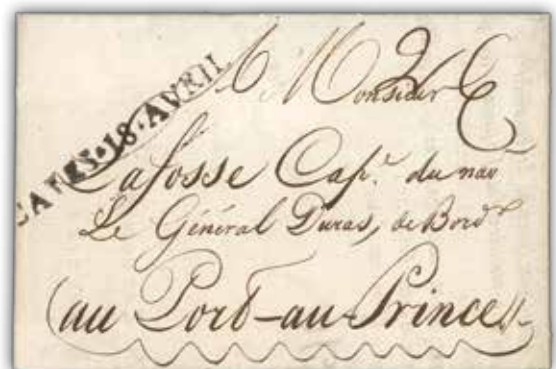 CAYES·18·AVRIL
A Monsieur
Lafosse Cap.e du nav
Le Général Duras, de Bord.x
au Port-au-Prince